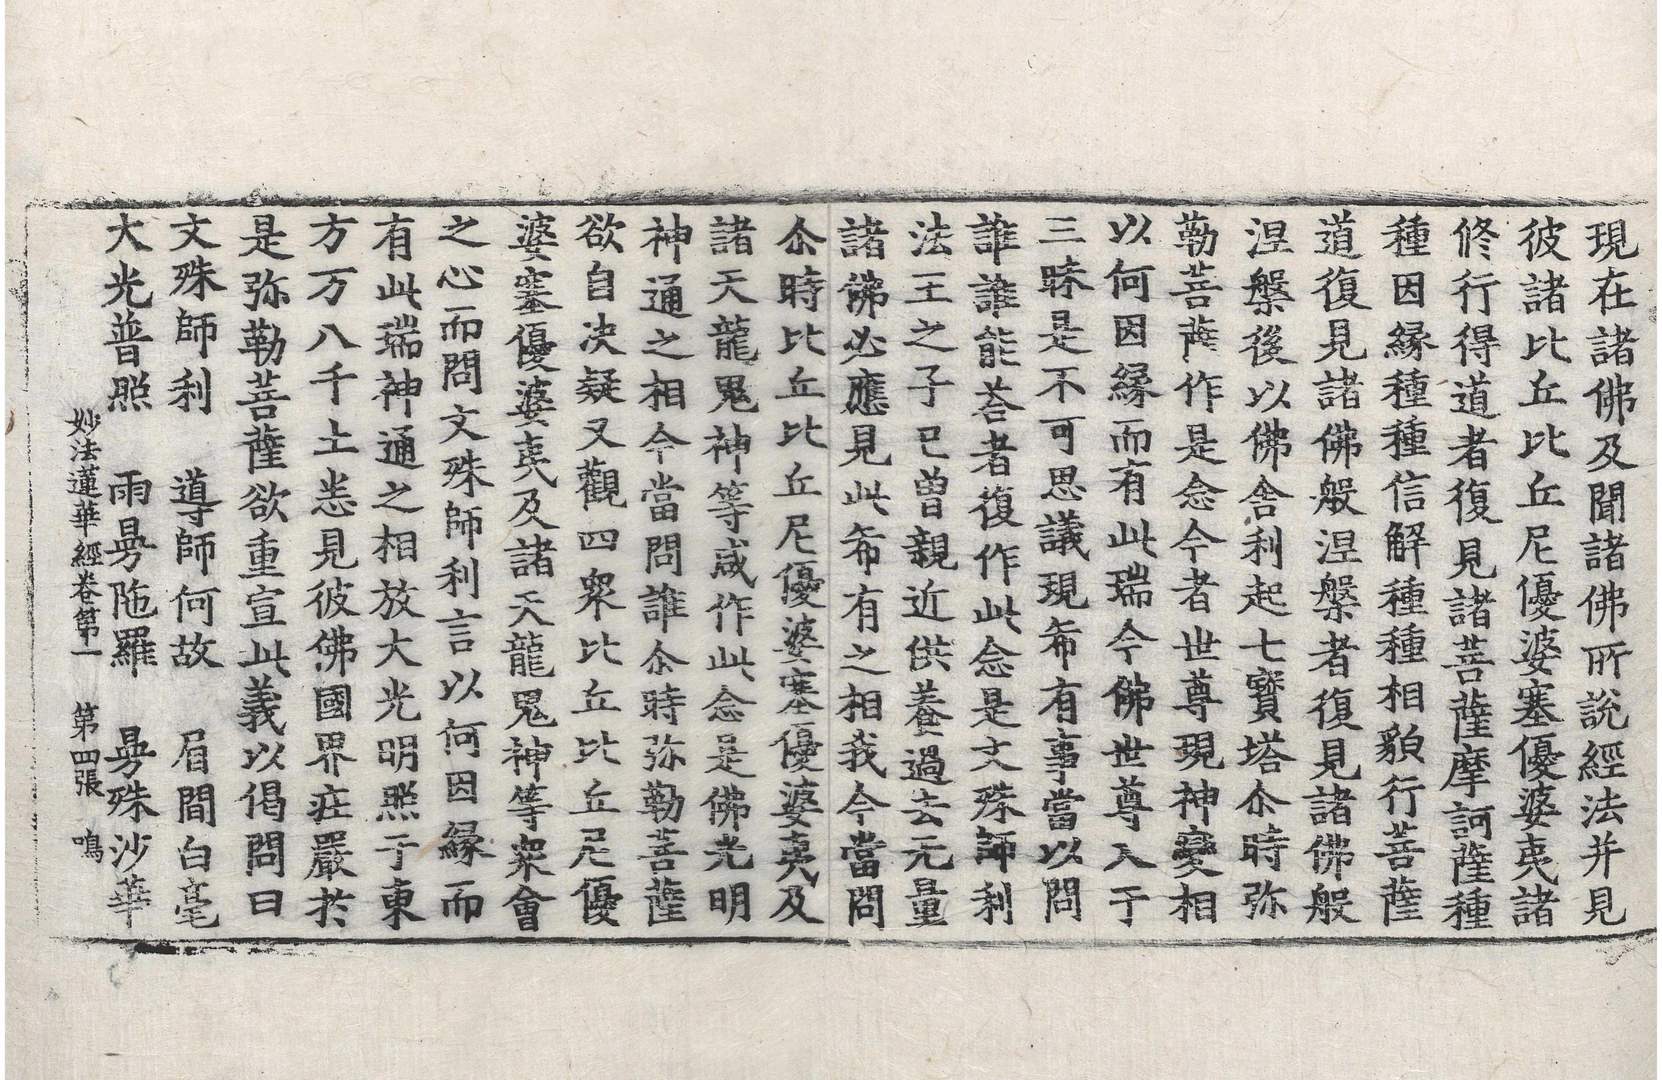 現在諸佛及聞諸佛所說經法并見
彼諸比丘比丘尼優婆塞優婆夷諸
修行得道者復見諸菩薩摩訶薩種
種因縁種種信解種種相貌行菩薩
道復見諸佛般涅槃者復見諸佛般
涅槃後以佛舍利起七寶塔尒時弥
勒菩薩作是念今者世尊現神變相
以何因縁而有此瑞今佛世尊入于
三昧是不可思議現希有事當以問
誰誰能荅者復作此念是文殊師利
法王之子已曽親近供養過去元量
諸佛必應見此希有之相我今當問
尒時比丘比丘尼優婆塞優婆夷及
諸天龍鬼神等咸作此念是佛光明
神通之相今當問誰尒時弥勒菩薩
欲自决疑又觀四衆比丘比丘尼優
婆塞優婆夷及諸天龍鬼神等衆會
之心而問文殊師利言以何因縁而
有此瑞神通之相放大光明照于東
方万八千土悉見彼佛國界莊嚴於
是弥勒菩薩欲重宣此義以偈問曰
文殊師利　導師何故　眉間白毫
大光普照　雨曼陁羅　曼殊沙華
妙法蓮華經卷第一　第四張　鳴